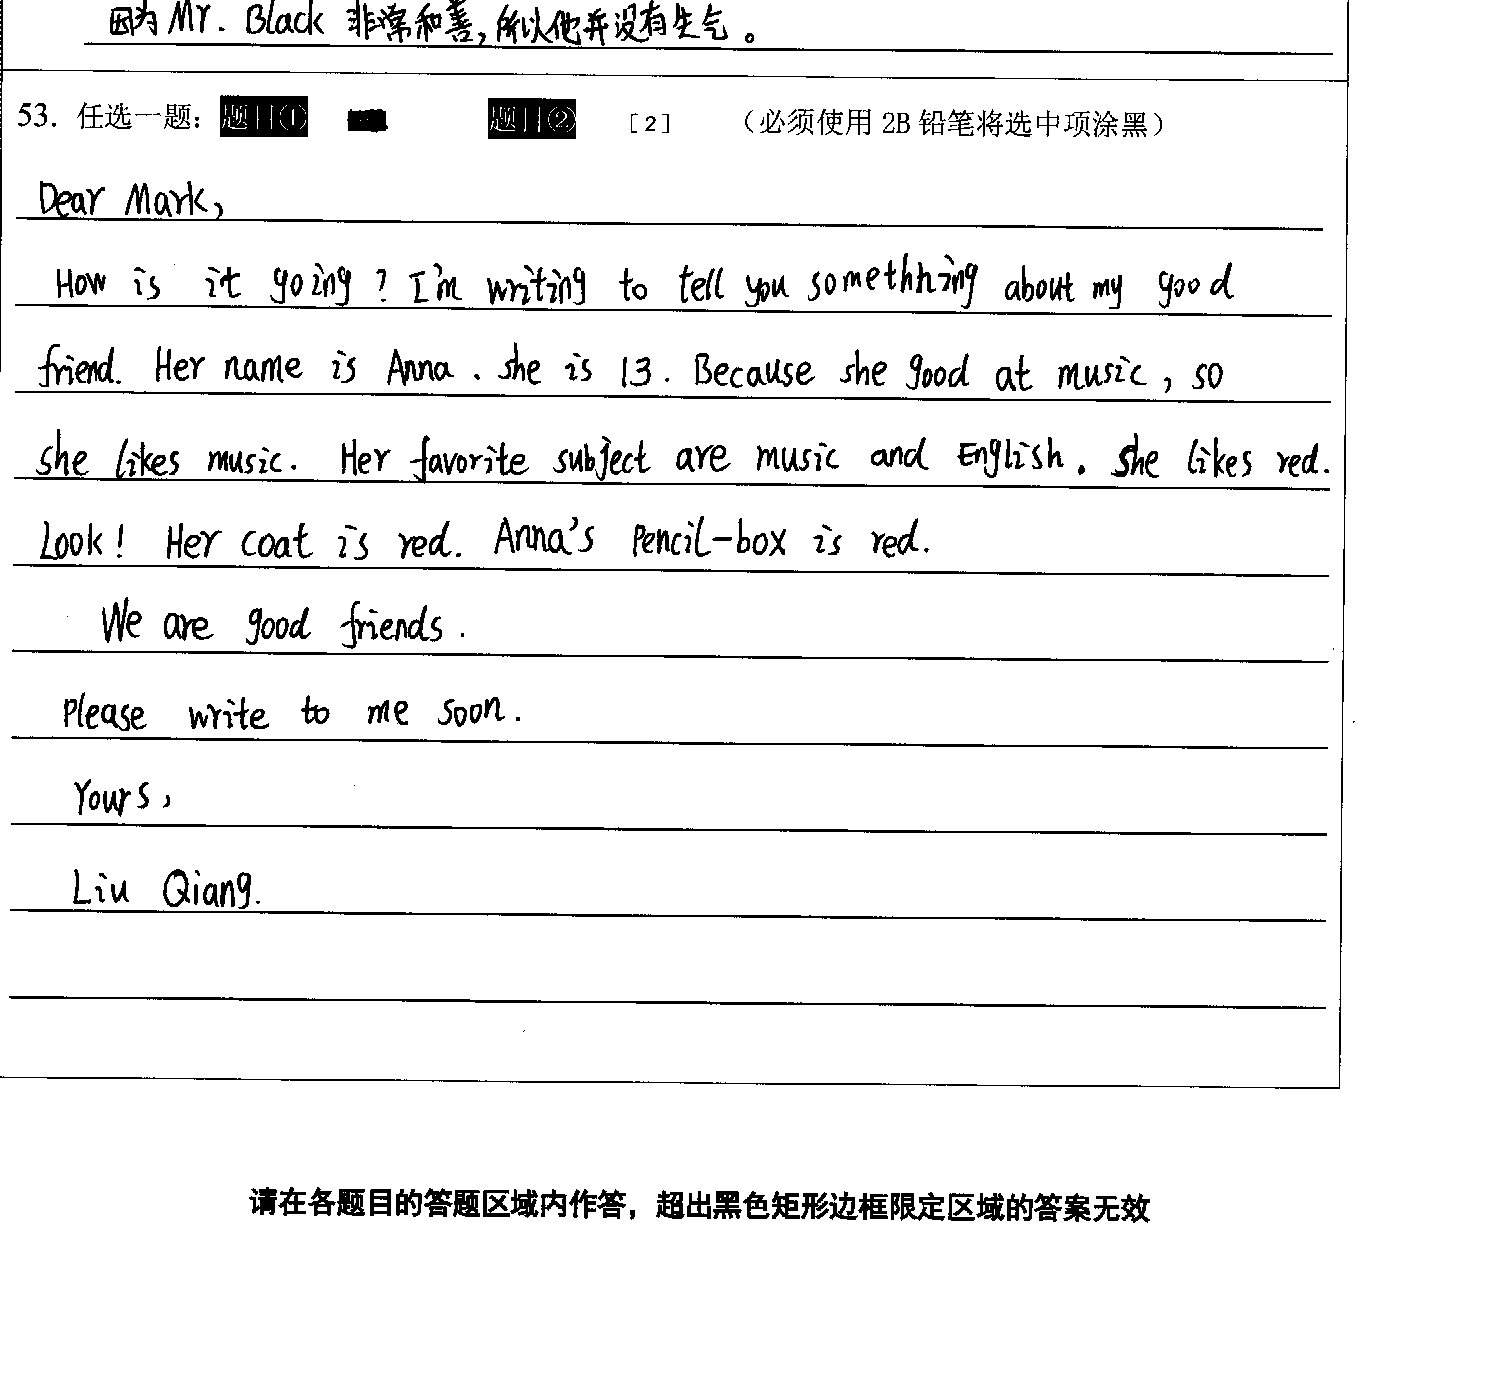 因为Mr. Black 非常和善,所以他并没有生气。
53. 任选一题: 题目① 题目② [2] (必须使用 2B 铅笔将选中项涂黑)
Dear Mark,
How is it going? I'm writing to tell you somethhing about my good
friend. Her name is Anna. she is 13. Because she good at music, so
she likes music. Her favorite subject are music and English. She likes red.
Look! Her coat is red. Anna's Pencil-box is red.
We are good friends.
Please write to me soon.
Yours,
Liu Qiang.
请在各题目的答题区域内作答，超出黑色矩形边框限定区域的答案无效